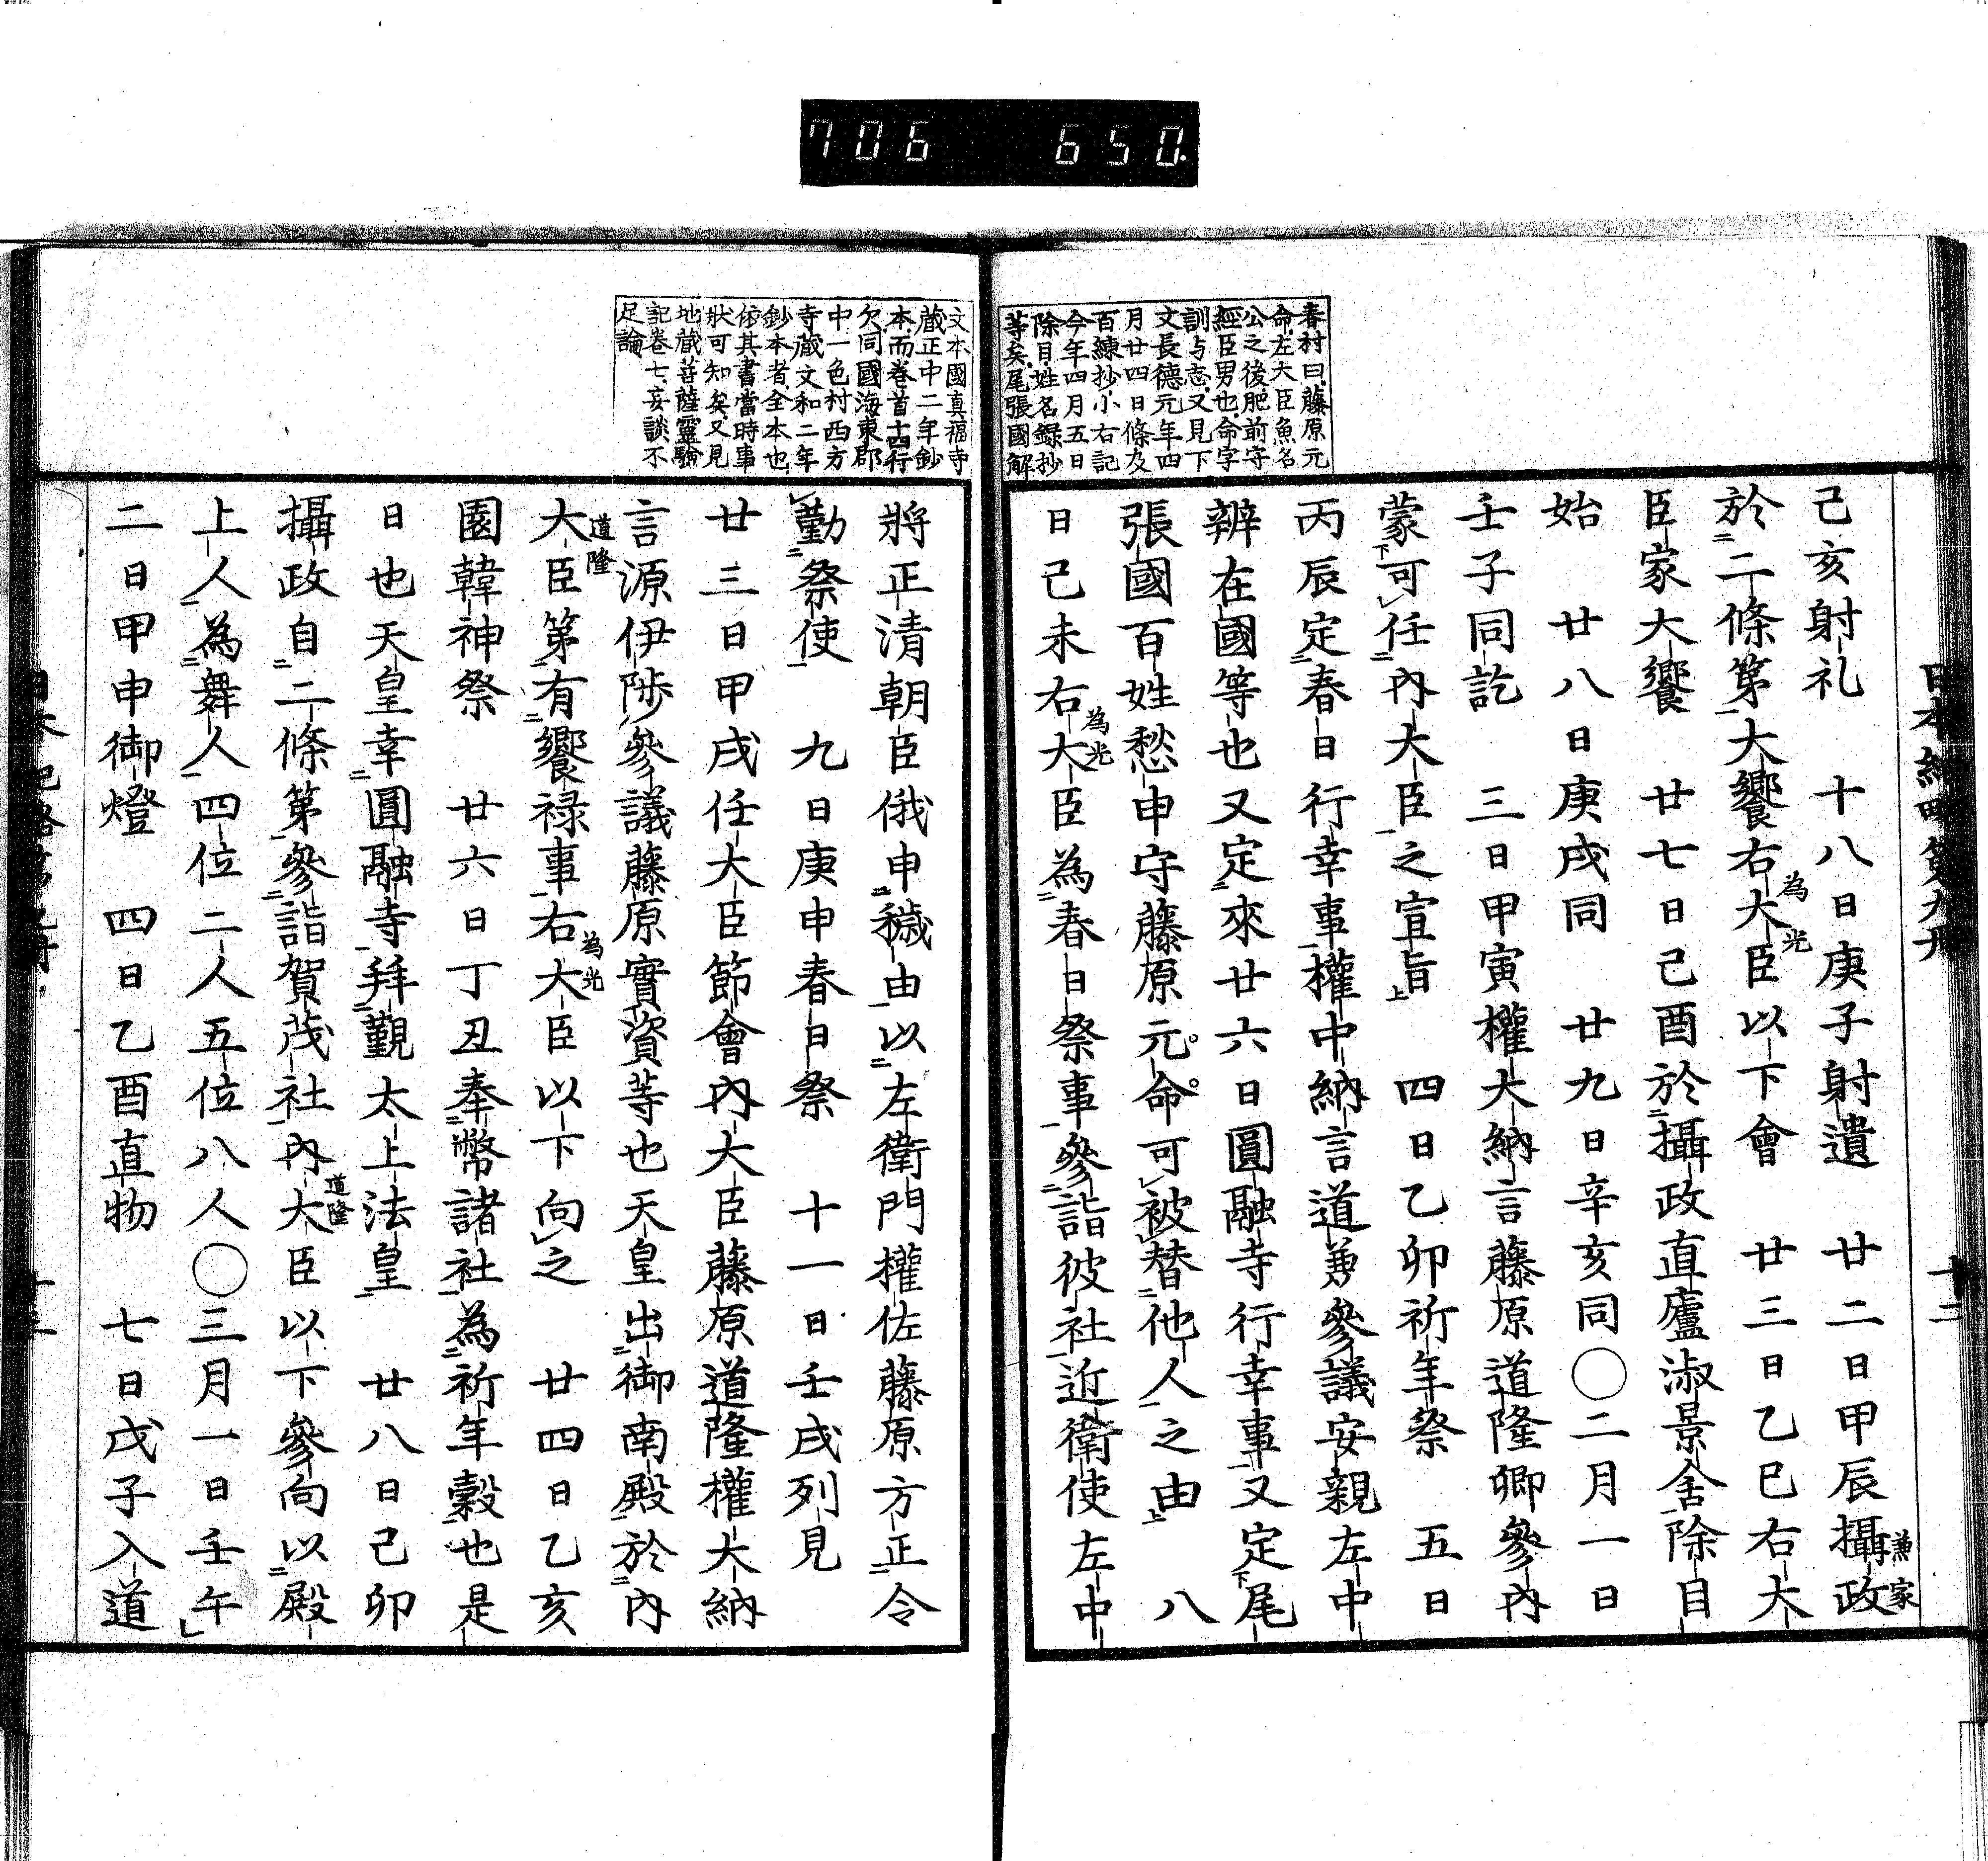 706 650.
春村曰、藤原元
命、左大臣魚名
公之後、肥前守
經臣男也、命字
訓与志、又見下
文長德元年四
月廿四日條及
百練抄、小右記
今年四月五日
除目、姓名録抄
等矣、尾張國解
己亥射礼　十八日庚子射遺　廿二日甲辰攝政兼家
於二二條第一大饗右大臣為光以下會　廿三日乙巳右大
臣家大饗　廿七日己酉於二攝政直廬淑景舍一除目
始　廿八日庚戌同　廿九日辛亥同〇二月一日
壬子同訖　三日甲寅權大納言藤原道隆卿參內
蒙下可レ任二內大臣一之宣旨上　四日乙卯祈年祭　五日
丙辰定二春日行幸事一權中納言道兼參議安親左中
辨在國等也又定二來廿六日圓融寺行幸事一又定下尾
張國百姓愁申守藤原元命可レ被レ替二他人一之由上　八
日己未右大臣為光為二春日祭事一參二詣彼社一近衛使左中
文本國真福寺
藏正中二年鈔
本、而卷首十四行
欠、同國海東郡
中一色村西方
寺藏文和二年
鈔本者、全本也、
依其書當時事
狀可知矣、又見
地藏菩薩靈驗
記卷七、妄談不
足論、
將正清朝臣俄申二穢由一以二左衛門權佐藤原方正一令
レ勤二祭使一　九日庚申春日祭　十一日壬戌列見
廿三日甲戌任大臣節會內大臣藤原道隆權大納
言源伊陟參議藤原實資等也天皇出二御南殿一於二內
大臣道隆第一有二饗祿事一右大臣為光以下向レ之　廿四日乙亥
園韓神祭　廿六日丁丑奉二幣諸社一為二祈年穀一也是
日也天皇幸二圓融寺一拜二覲太上法皇一　廿八日己卯
攝政自二二條第一參二詣賀茂社一內大臣道隆以下參向以二殿
上人一為二舞人一四位二人五位八人〇三月一日壬午
二日甲申御燈　四日乙酉直物　七日戊子入道